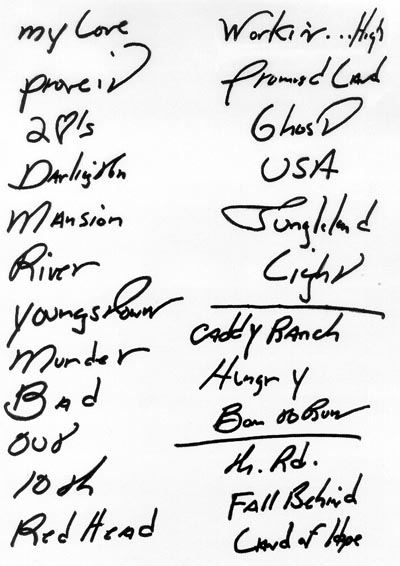 my Love
prove it
2 ♡'s
Darlington
Mansion
River
Youngstown
Murder
Bad
out
10th
Red Head
Workin...High
Promised Land
Ghost
USA
Jungleland
Light
Caddy Ranch
Hungry
Born to Run
Th. Rd.
Fall Behind
Land of Hope